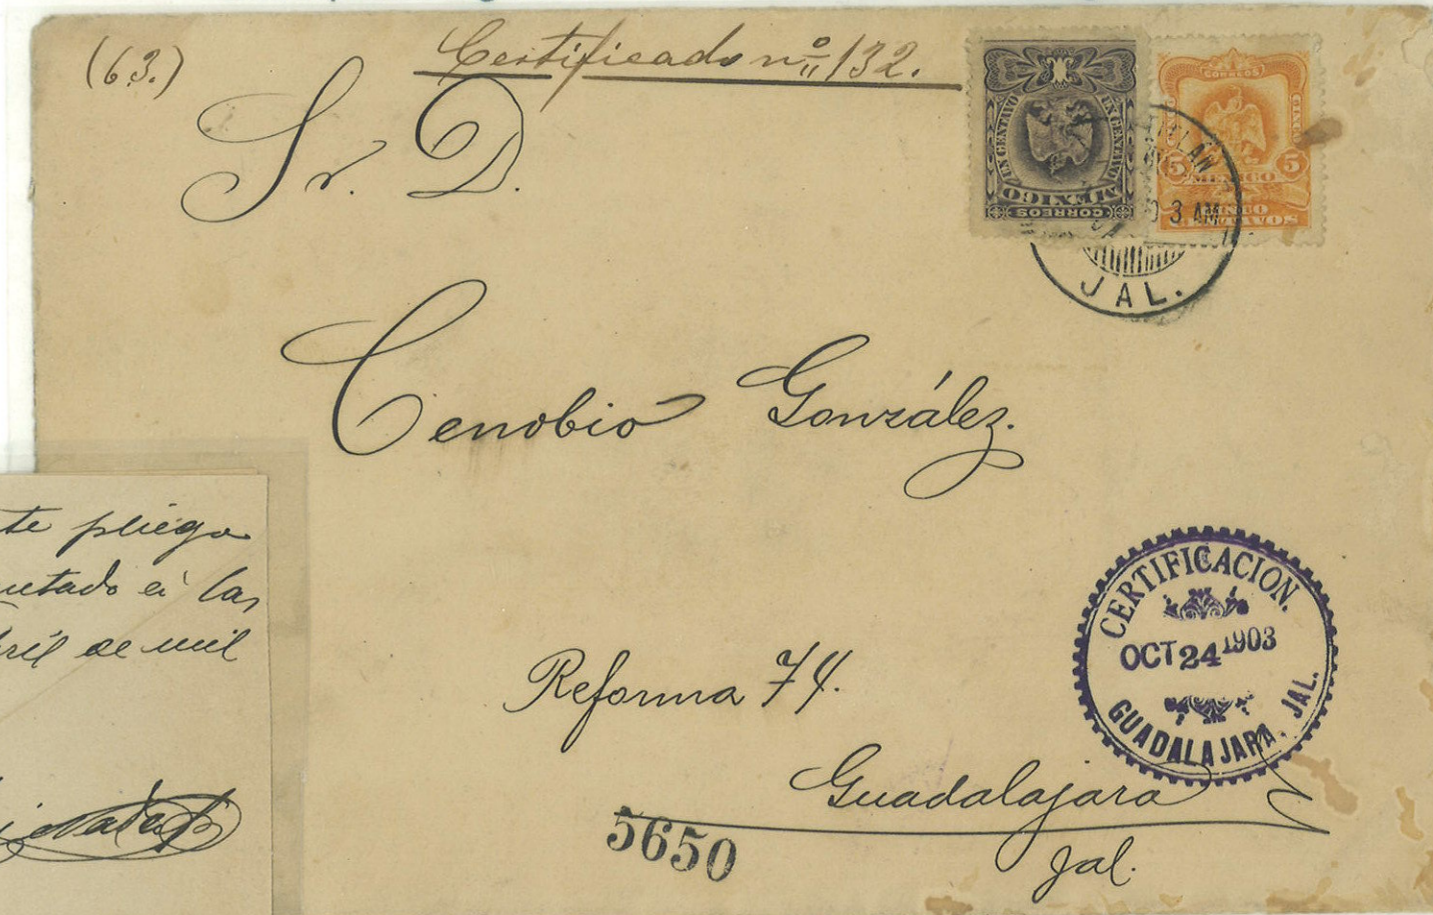 (63.)
Certificado nº 132.
Sr. D.
Cenobio González.
Reforma 74.
Guadalajara
Jal.
5650
UN CENTAVO
UN CENTAVO
MEXICO
CORREOS
CORREOS
5
5
MEXICO
CINCO
CENTAVOS
3 AM
JAL.
CERTIFICACION.
OCT 24 1903
GUADALAJARA, JAL.
te pliego
á las
de mil